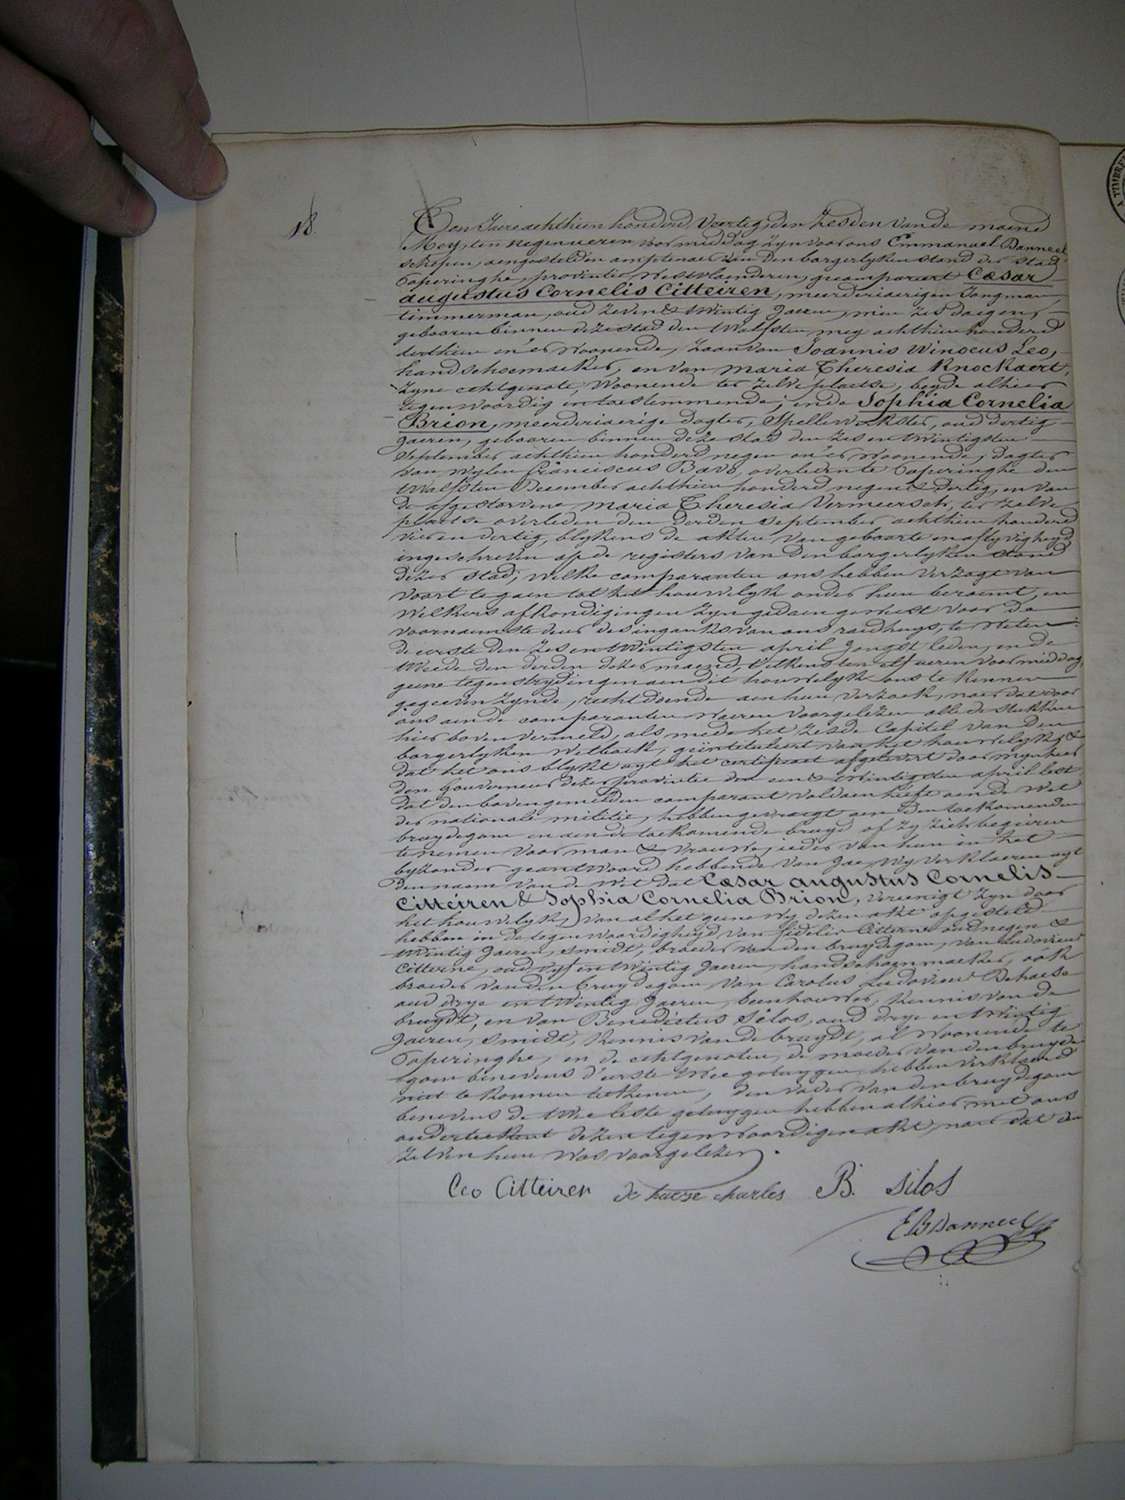 18.
Den Jaere achthien honderd Veertig, den Zesden van de maend
Meÿ, ten negen ueren voormiddag zyn voor ons Emmanuel Banneel
schepen, aengestelden amptenaer van den borgerlyken stand der Stad
Poperinghe, provintie Westvlaenderen, gecompareert Cæsar
augustus Cornelis Citteiren, meerderiaerigen Jongman,
timmerman, oud Zeven & twintig Jaeren, min zes daegen,
gebooren binnen deze stad den Twalfsten meÿ achthien honderd
derthien en'er woonende, Zoon van Joannis Winocus Leo,
handschoemaeker, en van maria Theresia Knockaert,
zyne echtgenote, woonende ter zelve plaetse, beyde alhier
tegenwoordig en toestemmende; ende Sophia Cornelia
Brion, meerderiaerige dogter, Spellewerkster, oud dertig
Jaeren, gebooren binnen deze stad den zes en twintigsten
September achthien honderd negen en'er woonende, dogter
van wylen Franciscus Bavo, overleden te Poperinghe den
Twalfsten December achthien honderd negen & dertig, en van
de afgestorvene maria Theresia Vermeersch, ter zelve
plaetse overleden den derden September achthien honderd
vier en dertig, blykens de akten van geboorte en aflyvigheyd
ingeschreven op de registers van den borgerlyken stand
dezer stad; welke comparanten ons hebben verzogt van
voort te gaen tot het houwelyk onder hun beraemt, en
welkers afkondigingen zyn gedaen geweest voor de
voornaemste deur des ingank van ons raedhuys, te weten:
de eerste den zes en twintigsten april Jongst leden, en de
tweede den derden dezer maend, telkens ten elf ueren voormiddag,
geene tegenstrydingen aen dit houwelyk ons te kennen
gegeven zynde, rechtdoende aen hun verzoek, naer dat door
ons aen de comparanten waeren voorgelezen alle de stukken
hier boven vermeld, als mede het zesde Capitel van den
borgerlyken Wetboek, geïntituleert van het houwelyk, &
dat het ons blykt uyt het certificaet afgelevert door mynheer
den Gouverneur dezer provintie den een & twintigsten april lest
dat den bovengemelden comparant voldaen heeft aen de Wet
der nationale militie, hebben gevraegt aen den toekomenden
bruydegom en aen de toekomende bruyd of zy zich begeeren
te nemen voor man & vrouw, ieder van hun in het
byzonder geantwoord hebbende van Jae, wy verklaeren uyt
den naem van de wet dat Cæsar augustus Cornelis
Citteiren & Sophia Cornelia Brion, vereenigt zyn door
het houwelyk, van al het gene wy dezen akt opgesteld
hebben in de tegenwoordigheyd van Fidelis Citterne oud negen &
twintig Jaeren, smidt, broeder van den bruydegom, van Ludovicus
Citterne, oud vyf en twintig Jaeren, handschoenmaeker, oòk
broeder van den bruydegom, van Carolus Ludovicus Dehaese
oud drye en twintig Jaeren, beenhouwer, kennis van de
bruydt, en van Benedictus Silos, oud drye en twintig
Jaeren, smidt, kennis van de bruydt, al woonende te
Poperinghe, en de echtgenoten, de moeder van den bruyde-
gom benevens d'eerste twee getuygen, hebben verklaerd
niet te konnen teekenen, den vader van den bruydegom
benevens de twee leste getuygen hebben alhier met ons
onderteekent dezen tegenwoordigen akt, naer dat den
zelven hun was voorgelezen.
Leo Citteiren de haese charles B. silos
E B Banneel